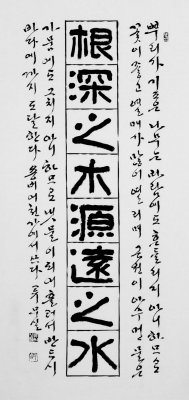 뿌리가 깊은 나무는 바람에도 흔들리지 아니하므로
꽃이 좋고 열매가 많이 열리며 근원이 아주 먼 물은
根深之木源遠之水
가뭄에도 그치지 아니하므로 냇물이 되어 흘러서 반드시
바다에까지 도달한다 용비어천가에서 쓰다